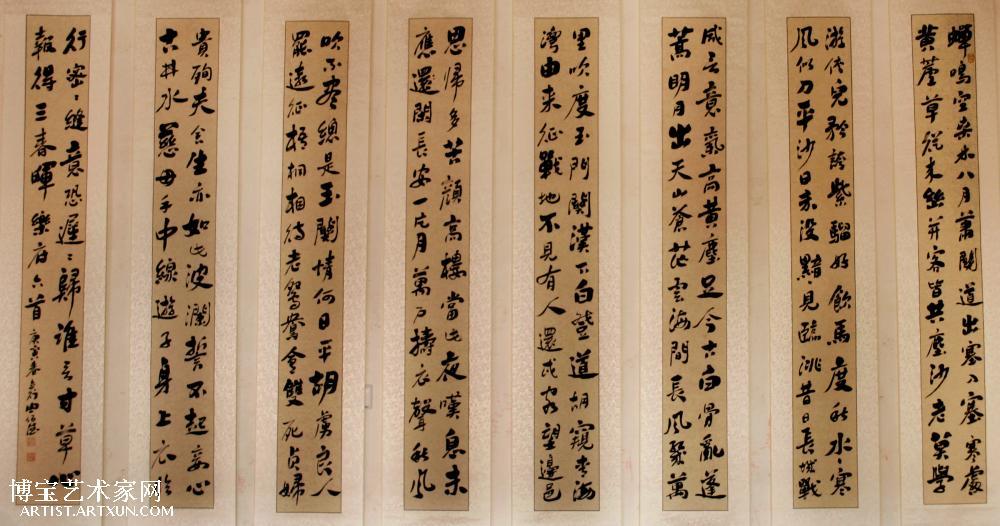 蟬鳴空桑林八月蕭關道出塞入塞寒處
黄蘆草從來幽并客皆共塵沙老莫學
游俠兒矜誇紫騮好飲馬度秋水ヽ寒
風似刀平沙日未沒黯ヽ見臨洮昔日長城戰
咸言意氣高黄塵足今古白骨亂蓬
蒿明月出天山蒼茫雲海間長風幾萬
里吹度玉門關漢下白登道胡窺青海
灣由來征戰地不見有人還戍客望邊邑
思歸多苦顏高樓當此夜嘆息未
應還閑長安一片月萬户擣衣聲秋風
吹不盡總是玉關情何日平胡虜良人
罷遠征梧桐相待老鴛鴦會雙死貞婦
貴殉夫舍生亦如此波瀾誓不起妾心
古井水慈母手中線遊子身上衣臨
行密ヽ縫意恐遲ヽ歸誰言寸草心
報得三春暉樂府六首
庚寅春
博宝艺术家网
ARTIST.ARTXUN.COM